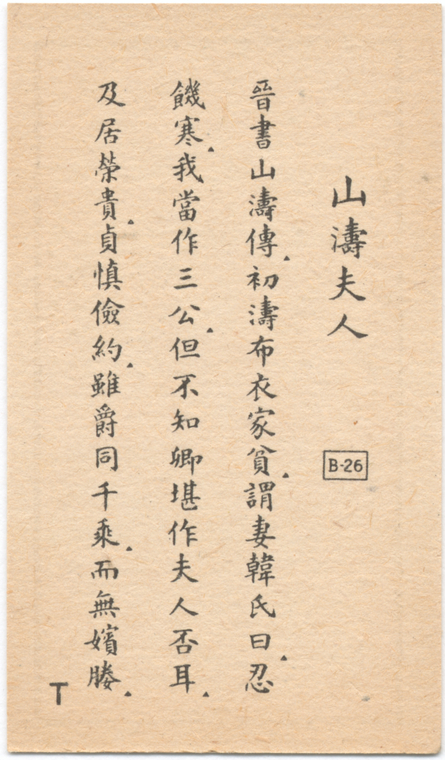 山濤夫人
B-26
晉書山濤傳.初濤布衣家貧.謂妻韓氏曰.忍
饑寒.我當作三公.但不知卿堪作夫人否耳.
及居榮貴.貞慎儉約.雖爵同千乘.而無嬪媵.
T